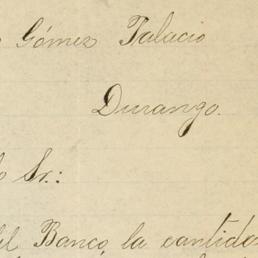 Gómez Palacio
Durango.
Sr.:
del Banco, la cantidad